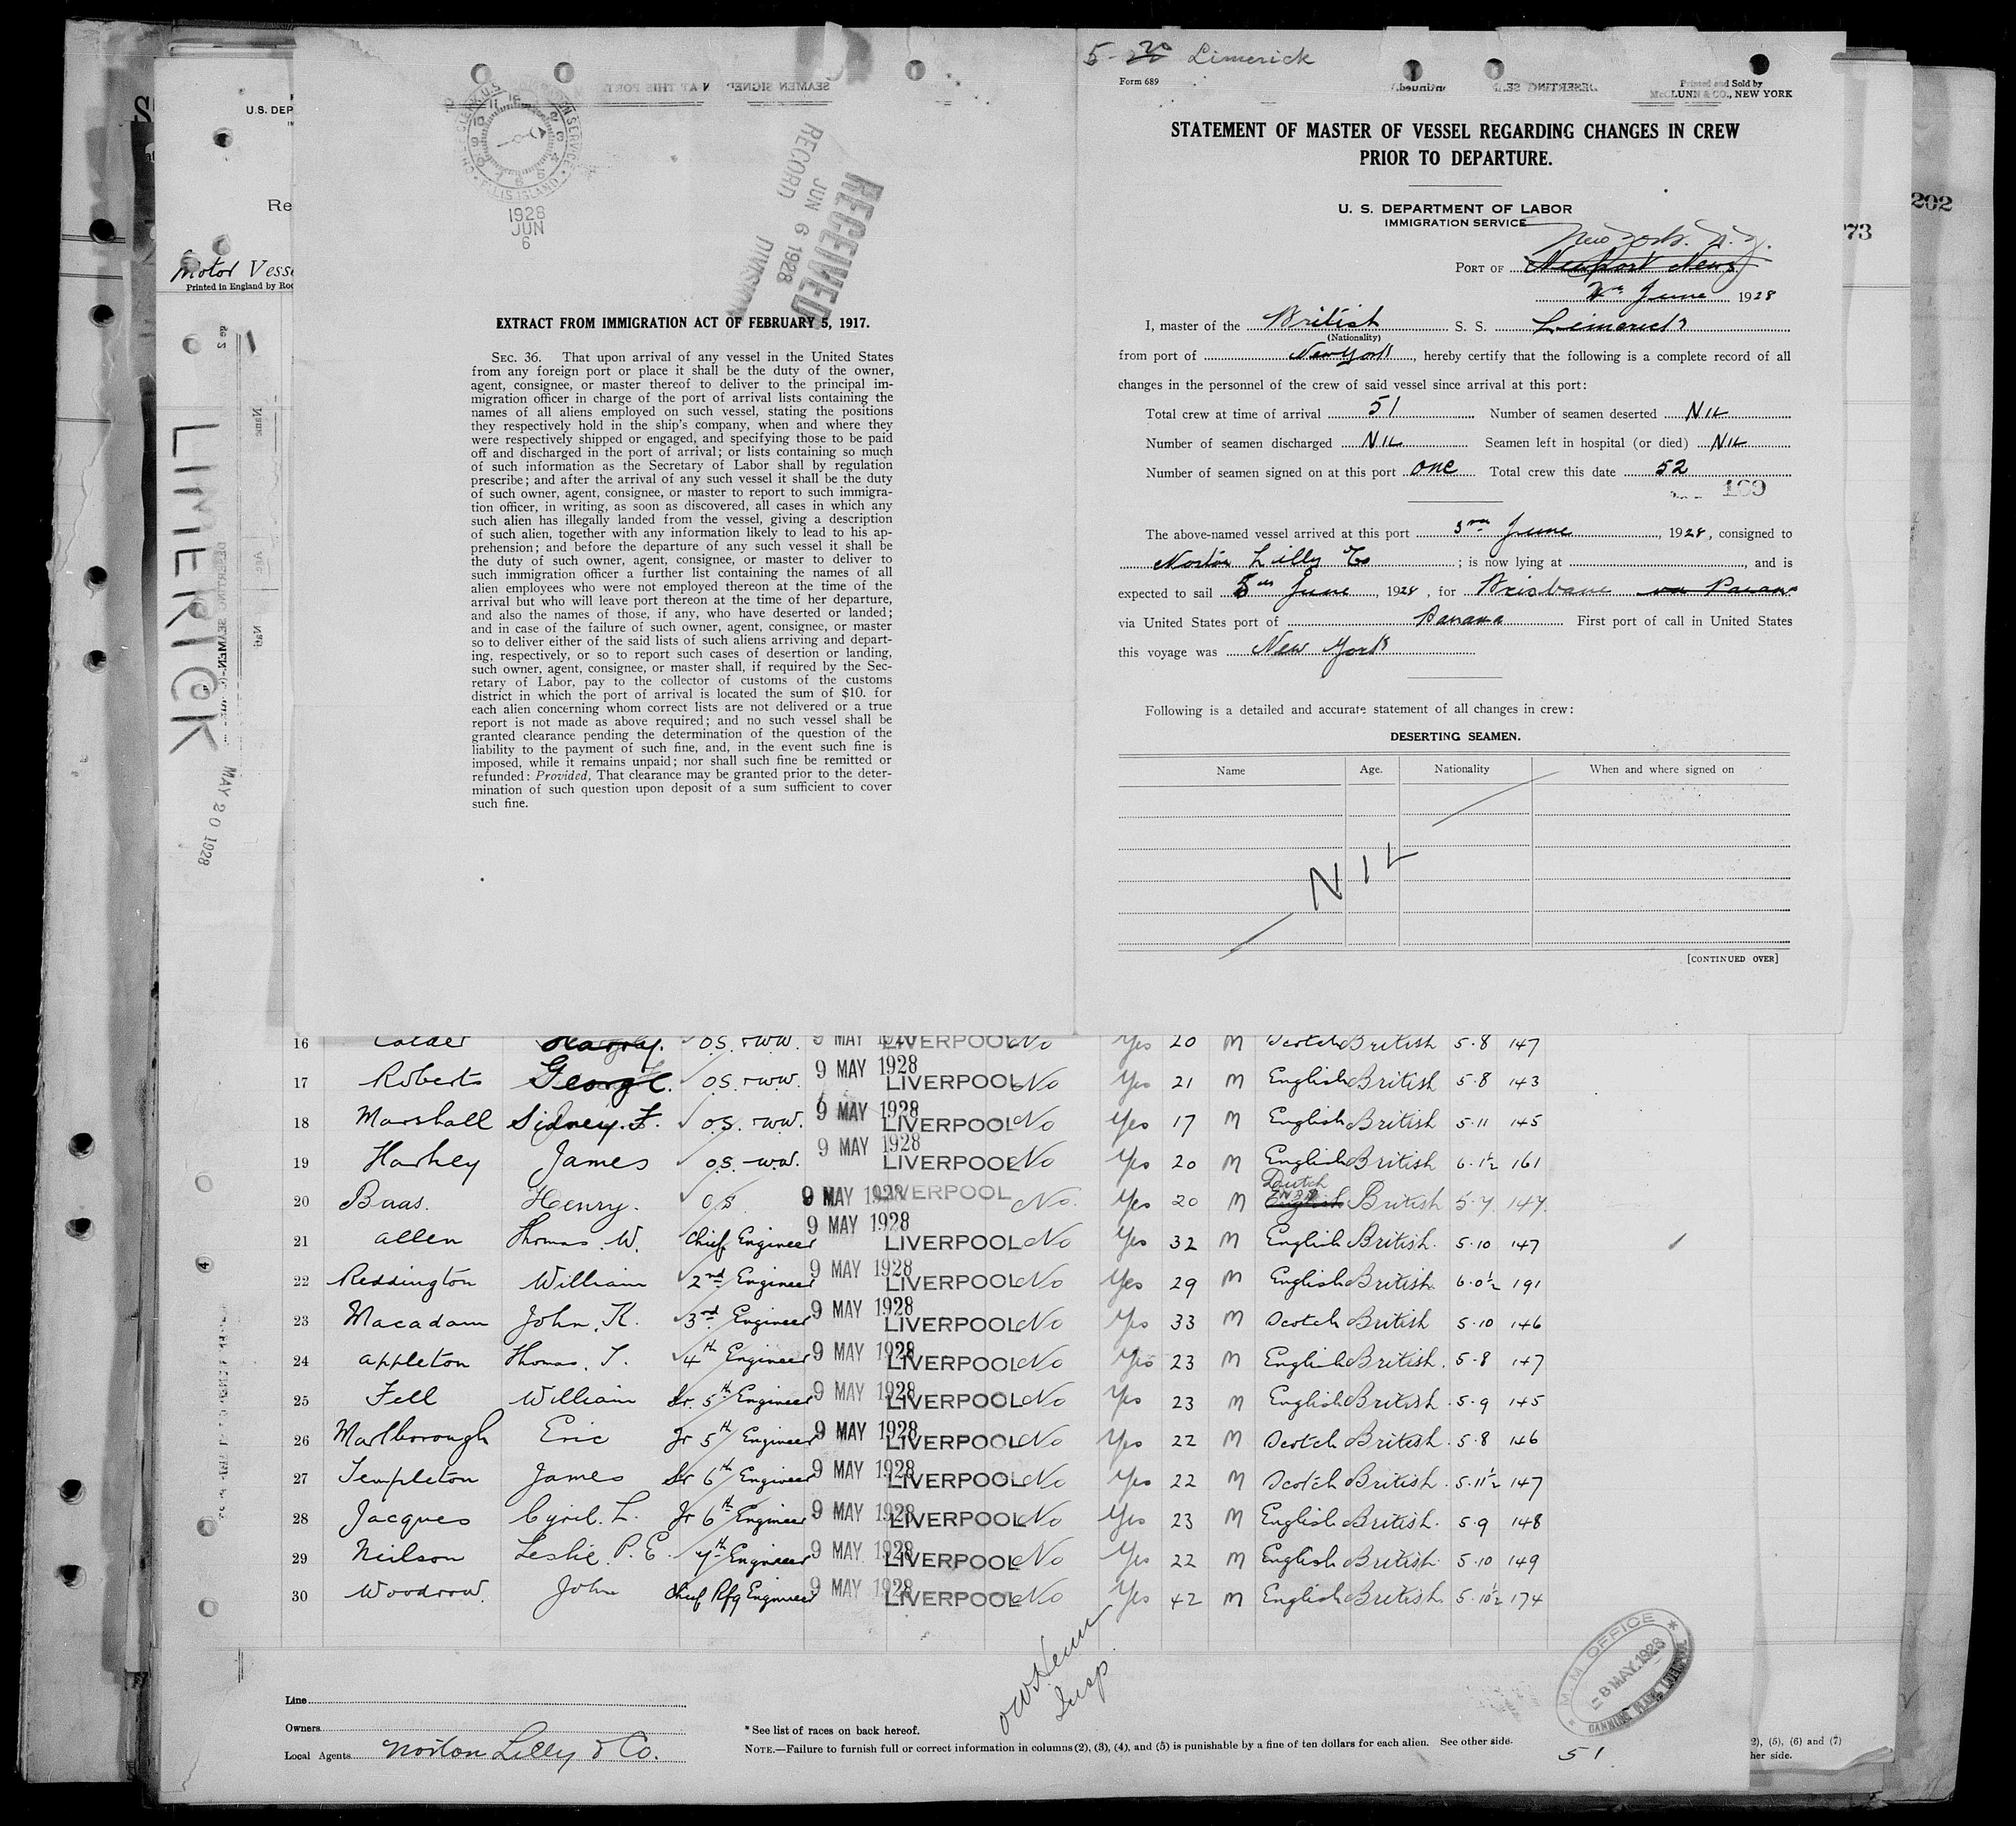 5-20 Limerick
Form 689
Printed and Sold by
McCLUNN & CO., NEW YORK
STATEMENT OF MASTER OF VESSEL REGARDING CHANGES IN CREW
PRIOR TO DEPARTURE.
U. S. DEPARTMENT OF LABOR
IMMIGRATION SERVICE
New York. N. Y.
PORT OF Newport News
June 1928
I, master of the British S. S. Limerick
(Nationality)
from port of New York, hereby certify that the following is a complete record of all
changes in the personnel of the crew of said vessel since arrival at this port:
Total crew at time of arrival 51 Number of seamen deserted NIL
Number of seamen discharged NIL Seamen left in hospital (or died) NIL
Number of seamen signed on at this port one Total crew this date 52
169
The above-named vessel arrived at this port 3rd June, 1928, consigned to
Norton Lilly Co; is now lying at, and is
expected to sail 5th June, 1928, for Brisbane via Panama
via United States port of Panama First port of call in United States
this voyage was New York
Following is a detailed and accurate statement of all changes in crew:
DESERTING SEAMEN.
Name Age. Nationality When and where signed on
NIL
[CONTINUED OVER]
ELLIS ISLAND
1928
JUN
6
RECEIVED
JUN 6 1928
RECORD DIVISION
EXTRACT FROM IMMIGRATION ACT OF FEBRUARY 5, 1917.
SEC. 36. That upon arrival of any vessel in the United States
from any foreign port or place it shall be the duty of the owner,
agent, consignee, or master thereof to deliver to the principal im-
migration officer in charge of the port of arrival lists containing the
names of all aliens employed on such vessel, stating the positions
they respectively hold in the ship's company, when and where they
were respectively shipped or engaged, and specifying those to be paid
off and discharged in the port of arrival; or lists containing so much
of such information as the Secretary of Labor shall by regulation
prescribe; and after the arrival of any such vessel it shall be the duty
of such owner, agent, consignee, or master to report to such immigra-
tion officer, in writing, as soon as discovered, all cases in which any
such alien has illegally landed from the vessel, giving a description
of such alien, together with any information likely to lead to his ap-
prehension; and before the departure of any such vessel it shall be
the duty of such owner, agent, consignee, or master to deliver to
such immigration officer a further list containing the names of all
alien employees who were not employed thereon at the time of the
arrival but who will leave port thereon at the time of her departure,
and also the names of those, if any, who have deserted or landed;
and in case of the failure of such owner, agent, consignee, or master
so to deliver either of the said lists of such aliens arriving and depart-
ing, respectively, or so to report such cases of desertion or landing,
such owner, agent, consignee, or master shall, if required by the Sec-
retary of Labor, pay to the collector of customs of the customs
district in which the port of arrival is located the sum of $10. for
each alien concerning whom correct lists are not delivered or a true
report is not made as above required; and no such vessel shall be
granted clearance pending the determination of the question of the
liability to the payment of such fine, and, in the event such fine is
imposed, while it remains unpaid; nor shall such fine be remitted or
refunded: Provided, That clearance may be granted prior to the deter-
mination of such question upon deposit of a sum sufficient to cover
such fine.
U.S. DEP
Re
Motor Vesse
Printed in England by Roc
LIMERICK
MAY 20 1928
202
73
16 Calder Harry. O.S. + W.W. 9 MAY 1928 LIVERPOOL No Yes 20 M Scotch British 5.8 147
17 Roberts George. O.S. + W.W. 9 MAY 1928 LIVERPOOL No Yes 21 M English British 5.8 143
18 Marshall Sidney. F. O.S. + W.W. 9 MAY 1928 LIVERPOOL No Yes 17 M English British 5.11 145
19 Harkey James O.S. - W.W. 9 MAY 1928 LIVERPOOL No Yes 20 M English British 6.1½ 161
20 Baas. Henry. O.S 9 MAY 1928 LIVERPOOL No. Yes 20 M Dutch English British 5.7 147.
21 Allen Thomas. W. Chief Engineer 9 MAY 1928 LIVERPOOL No Yes 32 M English British. 5.10 147
22 Reddington William 2nd Engineer 9 MAY 1928 LIVERPOOL No Yes 29 M English British 6.0½ 191
23 Macadam John. K. 3rd Engineer 9 MAY 1928 LIVERPOOL No Yes 33 M Scotch British 5.10 146
24 Appleton Thomas. T. 4th Engineer 9 MAY 1928 LIVERPOOL No Yes 23 M English British. 5.8 147
25 Fell William Sr. 5th Engineer 9 MAY 1928 LIVERPOOL No Yes 23 M English British. 5.9 145
26 Marlborough Eric Jr 5th Engineer 9 MAY 1928 LIVERPOOL No Yes 22 M Scotch British. 5.8 146
27 Templeton James Sr 6th Engineer 9 MAY 1928 LIVERPOOL No Yes 22 M Scotch British. 5.11½ 147
28 Jacques Cyril. L. Jr 6th Engineer 9 MAY 1928 LIVERPOOL No Yes 23 M English British. 5.9 148
29 Neilson Leslie. P. E. 7th Engineer 9 MAY 1928 LIVERPOOL No Yes 22 M English British 5.10 149
30 Woodrow. John Chief Rfg Engineer 9 MAY 1928 LIVERPOOL No Yes 42 M English British. 5.10½ 174
Insp
M. M. OFFICE
8 MAY. 1928
Line
Owners
Local Agents Norton Lilly & Co.
* See list of races on back hereof.
NOTE.—Failure to furnish full or correct information in columns (2), (3), (4), and (5) is punishable by a fine of ten dollars for each alien. See other side.
51
2), (5), (6) and (7)
her side.